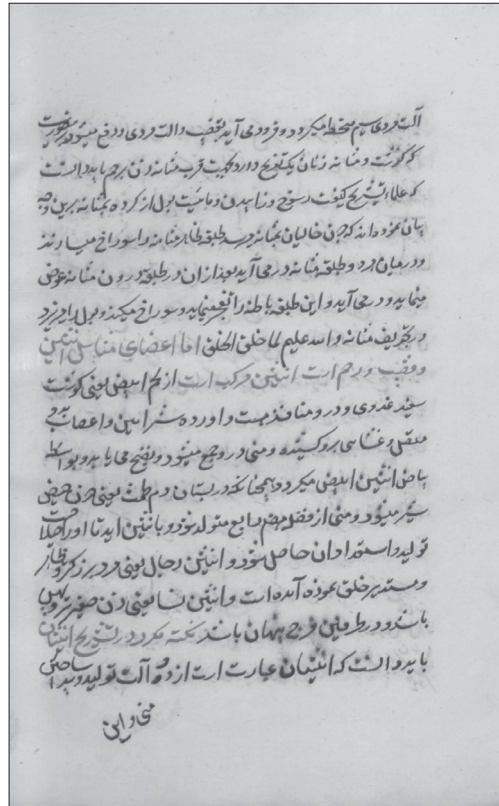 که گوشت و مثانه زنان یک تعویج دارد بجهت قرب مثانه و زن رحم باید دانست
که علماء تشریح کیفیت رسوخ و زاییدن و مائیت بول از گرده بمثانه برین وجه
بیان نموده اند که چون حالبان بمثانه رسد طبقه ظاهر مثانه را سوراخ میسازند
و درمیان هر دو طبقه مثانه در می آید بعد ازان در طبقه درون مثانه غوص
مینماید و در می آید و این طبقه باطنه را نیز سوراخ میکند و بول را میریزد
در تجویف مثانه والله علیم لما خلق الخلق اما اعضای تناسل انثیین
و قضیب و رحم است انثیین مرکب است از لحم ابیض یعنی گوشت
سفید غددی و درو منافذ هست و اورده و شرائین و اعصاب بدو
متصل و غشای برو کشیده و منی درو جمع میشود و نضج می یابد و بواسطه
بیاض انثیین ابیض میگردد همچنانکه در پستان دم طمث یعنی خون حیض
شیر میشود و منی از فضل هضم رابع متولد شود و بانثیین آید تا او را صلاحیت
تولید و استعداد آن حاصل شود و انثیین رجال یعنی مرد بزرگ و ظاهر
و مستدیر خلق نموده آمده است و انثیین نسا یعنی زن صغیر و پهن
باشد و در طرفین فرج پنهان باشد نکته دیگر در تشریح انثیان
باید دانست که انثیان عبارت است از دو آلت تولید و پیدا ساختن
منی و این